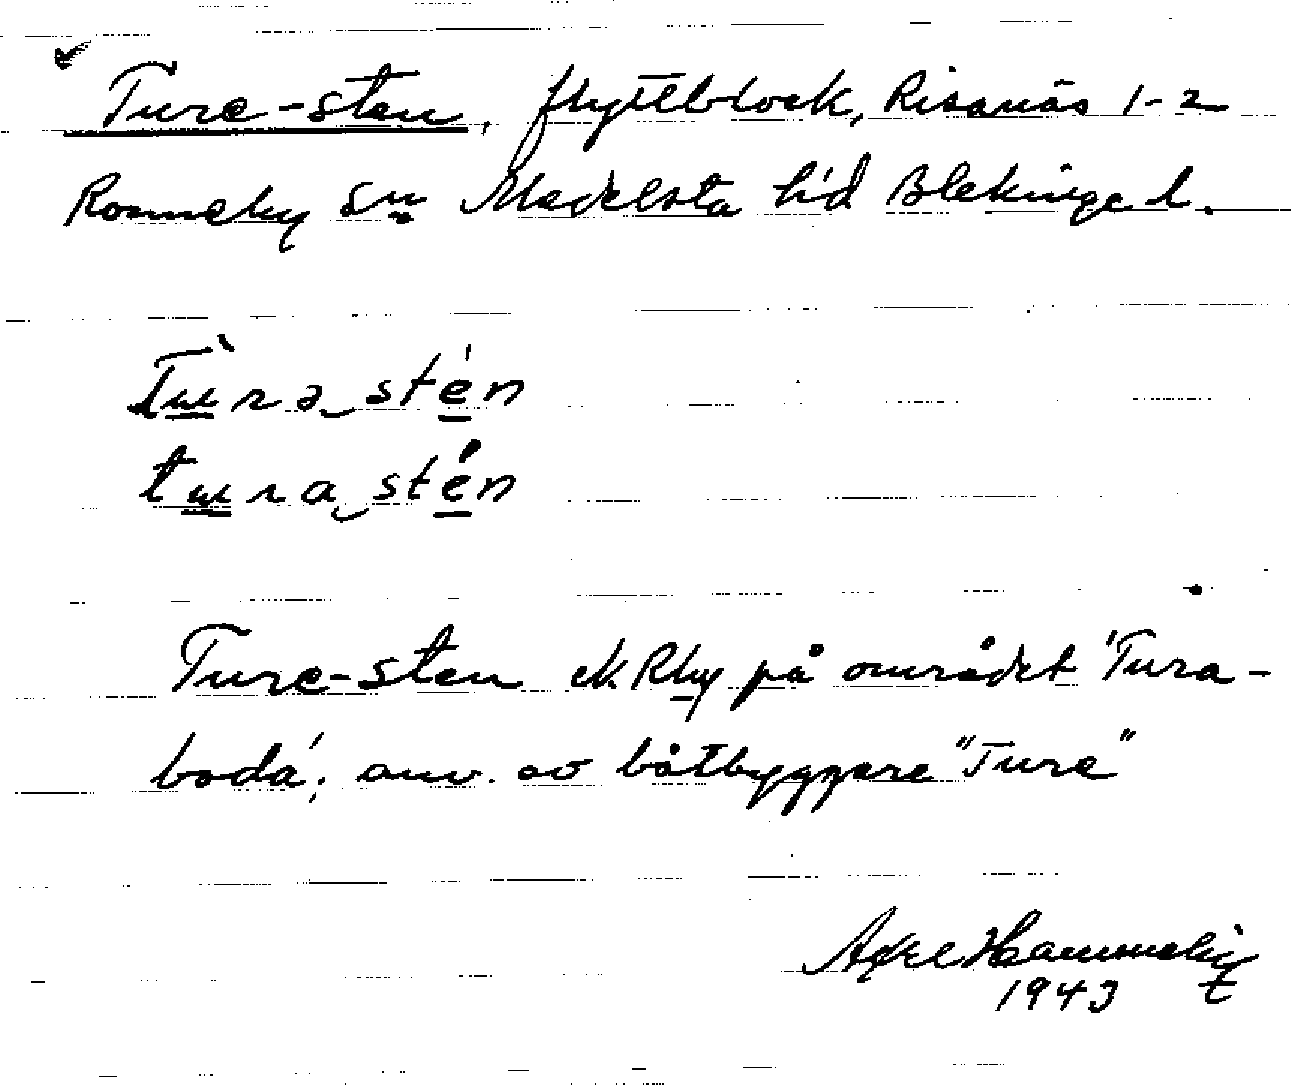 Ture-sten, flyttblock, Risanäs 1-2
Ronneby sn Medelsta hd Blekinge l.
Tùra_stén
tura_stén
Ture-sten på området 'Tura-
boda'; anv. av båtbyggere "Ture"
Axel
1943